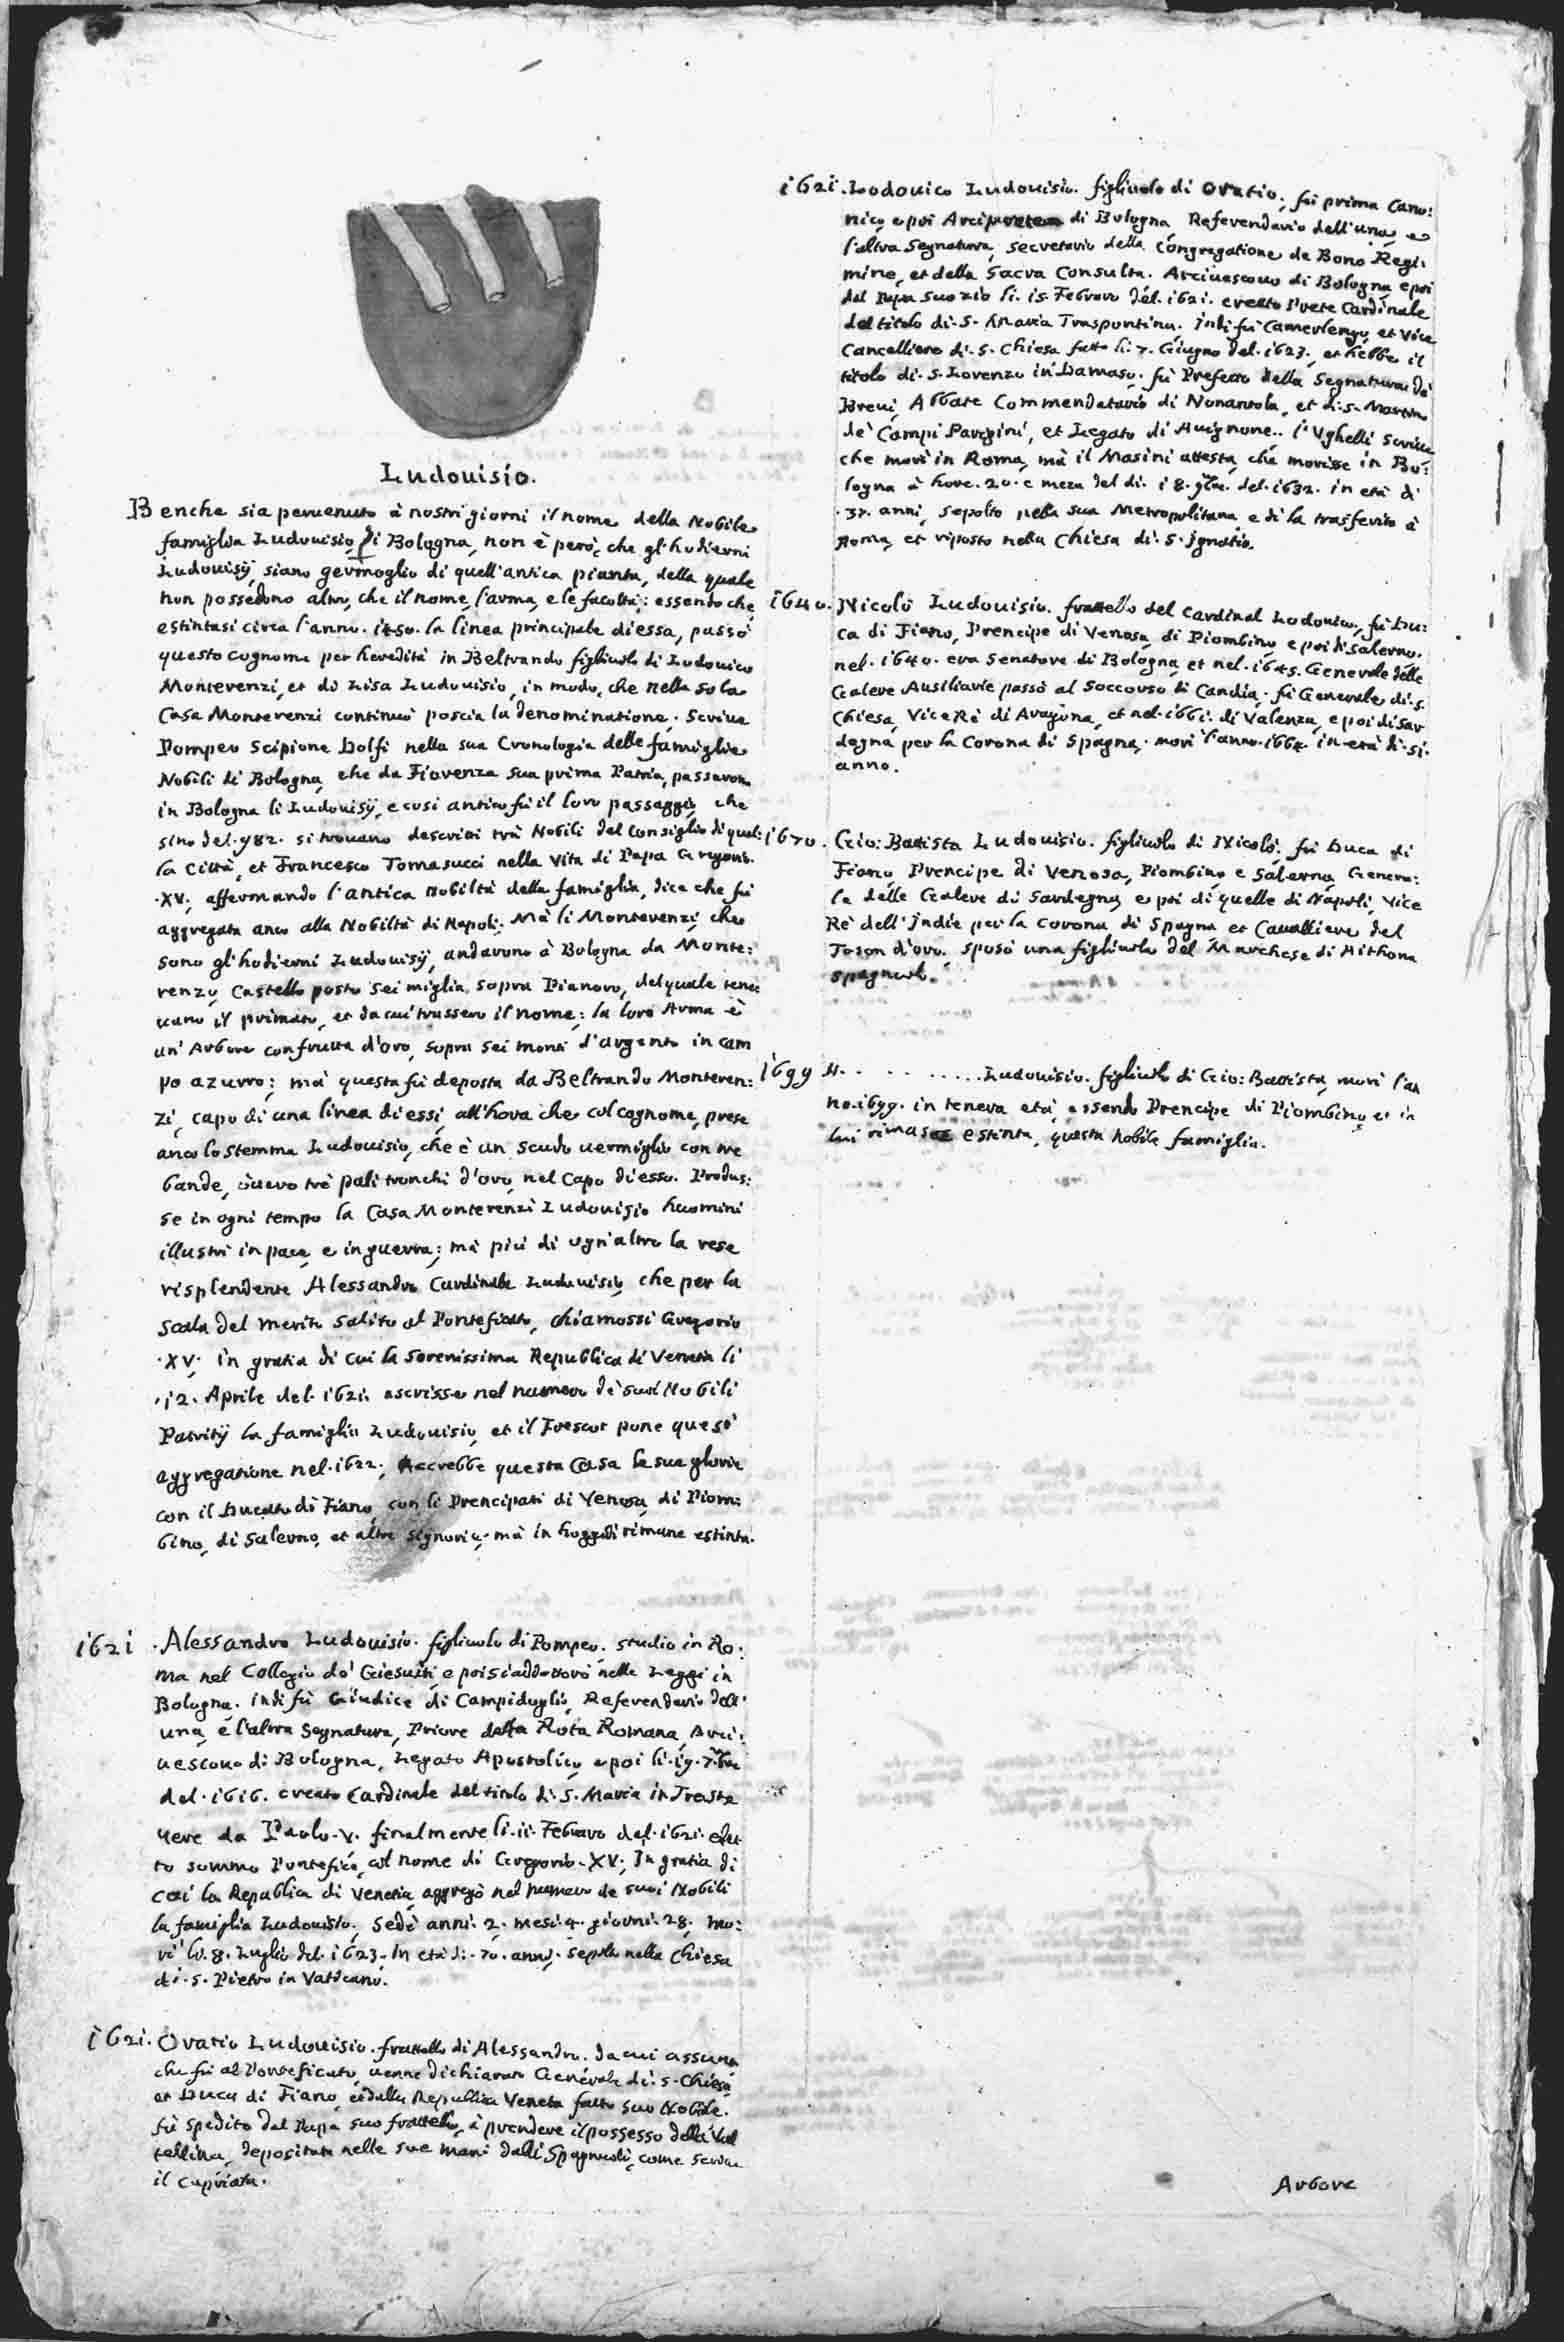 Ludouisio.
Benche sia peruenuto à nostri giorni il nome della Nobile
famiglia Ludouisio, di Bologna, non è però, che gl'hodierni
Ludouisij, siano germoglio di quell'antica pianta, della quale
non possedono altro, che il nome, l'arma, e le facoltà; essendo che
estintasi circa l'anno. 1450. la linea principale di essa, passò
questo cognome per heredità in Beltrando figliuolo di Lodouico
Monterenzi, et di Lisa Ludouisio, in modo, che nella sola
Casa Monterenzi continuò poscia la denominatione. Scriue
Pompeo Scipione Dolfi nella sua Cronologia delle famiglie
Nobili di Bologna, che da Fiorenza sua prima Patria, passarono
in Bologna li Ludouisij, e cosi antico fù il loro passaggio, che
sino del. 982. si trouano descritti trà Nobili del Consiglio di quel:
la Città, et Francesco Tomasucci nella Vita di Papa Gregorio.
.XV., affermando l'antica nobiltà della famiglia, dice che fù
aggregata anco alla Nobiltà di Napoli. Mà li Monterenzi, che
sono gl'hodierni Ludouisij, andarono à Bologna da Monte:
renzo, Castello posto sei miglia sopra Pianoro, del quale tene:
uano il primato, et da cui trassero il nome; la loro Arma è
un'Arbore con frutta d'oro, sopra sei monti d'argento in cam
po azurro; mà questa fù deposta da Beltrando Monteren:
zi, capo di una linea di essi, all'hora che col cognome, prese
anco lo stemma Ludouisio, che è un scudo uermiglio con tre
bande, ouero trè pali tronchi d'oro, nel Capo di esso. Produs:
se in ogni tempo la Casa Monterenzi Ludouisio huomini
illustri in pace, e in guerra; mà più di ogn'altro la rese
risplendente Alessandro Cardinale Ludouisio, che per la
scala del merito salito al Pontificato, chiamossi Gregorio
.XV. in gratia di cui la Serenissima Republica di Venetia li
.12. Aprile del. 1621. ascrisse nel numero de suoi Nobili
Patritij la famiglia Ludouisio, et il Frescot pone quest'
aggregatione nel. 1622. Accrebbe questa Casa le sue glorie
con il Ducato di Fiano, con li Prencipati di Venosa, di Piom:
bino, di Salerno, et altre Signorie, mà in hoggidì rimane estinta.
1621. Alessandro Ludouisio. figliuolo di Pompeo. studio in Ro:
ma nel Collegio de' Giesuiti, e poi s'addottorò nelle Leggi in
Bologna. indi fù Giudice di Campidoglio, Referendario dell'
una, e l'altra Segnatura, Priore della Rota Romana, Arci:
uescouo di Bologna, Legato Apostolico, e poi li. 19. 7bre
del. 1616. creato Cardinale del titolo di. S. Maria in Traste
uere da Paolo. V. finalmente li. 11. Febraro del. 1621. elet
to sommo Pontefice, col nome di Gregorio. XV. In gratia di
cui la Republica di Venetia aggregò nel numero de suoi Nobili
la famiglia Ludouisio. Sedè anni. 2. mesi. 4. giorni. 28. mo:
rì li. 8. Luglio del. 1623. in età di. 70. anni, sepolto nella Chiesa
di. S. Pietro in Vaticano.
1621. Oratio Ludouisio. frattello di Alessandro. da cui assunto
che fù al Pontificato, uenne dichiarato Generale di. S. Chiesa
et Duca di Fiano, et dalla Republica Veneta fatto suo Nobile.
fù spedito dal Papa suo frattello, à prendere il possesso della Val
tellina, depositata nelle sue mani dalli Spagnuoli, come scriue
il Capriata.
1621. Lodouico Ludouisio. figliuolo di Oratio. fù prima Cano:
nico, e poi Arciprete di Bologna, Referendario dell'una, e
l'altra Segnatura, secretario della Congregatione de Bono Regi:
mine, et della Sacra Consulta. Arciuescouo di Bologna, e poi
dal Papa suo zio li. 15. Febraro del. 1621. creato Prete Cardinale
del titolo di. S. Maria Traspontina. Indi fù Camerlengo, et Vice
Cancelliere di. S. Chiesa fatto li. 7. Giugno del. 1623., et hebbe il
titolo di. S. Lorenzo in Damaso. fù Prefetto della Segnatura de
Breui, Abbate Commendatario di Nonantola, et di. S. Martino
de' Campi Parigini, et Legato di Auignone. l'Vghelli scriue
che morì in Roma, mà il Masini attesta, che morisse in Bo:
logna à hore. 20. e meza del di. 18. 9bre. del. 1632. in età di
.37. anni, sepolto nella sua Metropolitana, e di la trasferito à
Roma, et riposto nella Chiesa di. S. Ignatio.
1640. Nicolò Ludouisio. frattello del Cardinal Lodouico, fù Du:
ca di Fiano, Prencipe di Venosa, di Piombino, e poi di Salerno.
nel. 1640. era Senatore di Bologna, et nel. 1645. Generale delle
Galere Ausiliarie passò al soccorso di Candia. fù Generale di. S.
Chiesa, Vice Rè di Aragona, et nel. 1661. di Valenza, e poi di Sar
degna per la Corona di Spagna. morì l'anno. 1664. in età di. 51.
anno.
1670. Gio: Battista Ludouisio. figliuolo di Nicolò. fù Duca di
Fiano, Prencipe di Venosa, Piombino, e Salerno, Genera:
le delle Galere di Sardegna, e poi di quelle di Napoli, Vice
Rè dell'Indie per la Corona di Spagna et Caualliere del
Toson d'oro. sposò una figliuola del Marchese di Aithona
spagnuolo.
1699 N. . . . . . . . . . Ludouisio. figliuolo di Gio: Battista, morì l'an
no. 1699. in tenera età, essendo Prencipe di Piombino, et in
lui rimase estinta, questa nobile famiglia.
Arbore